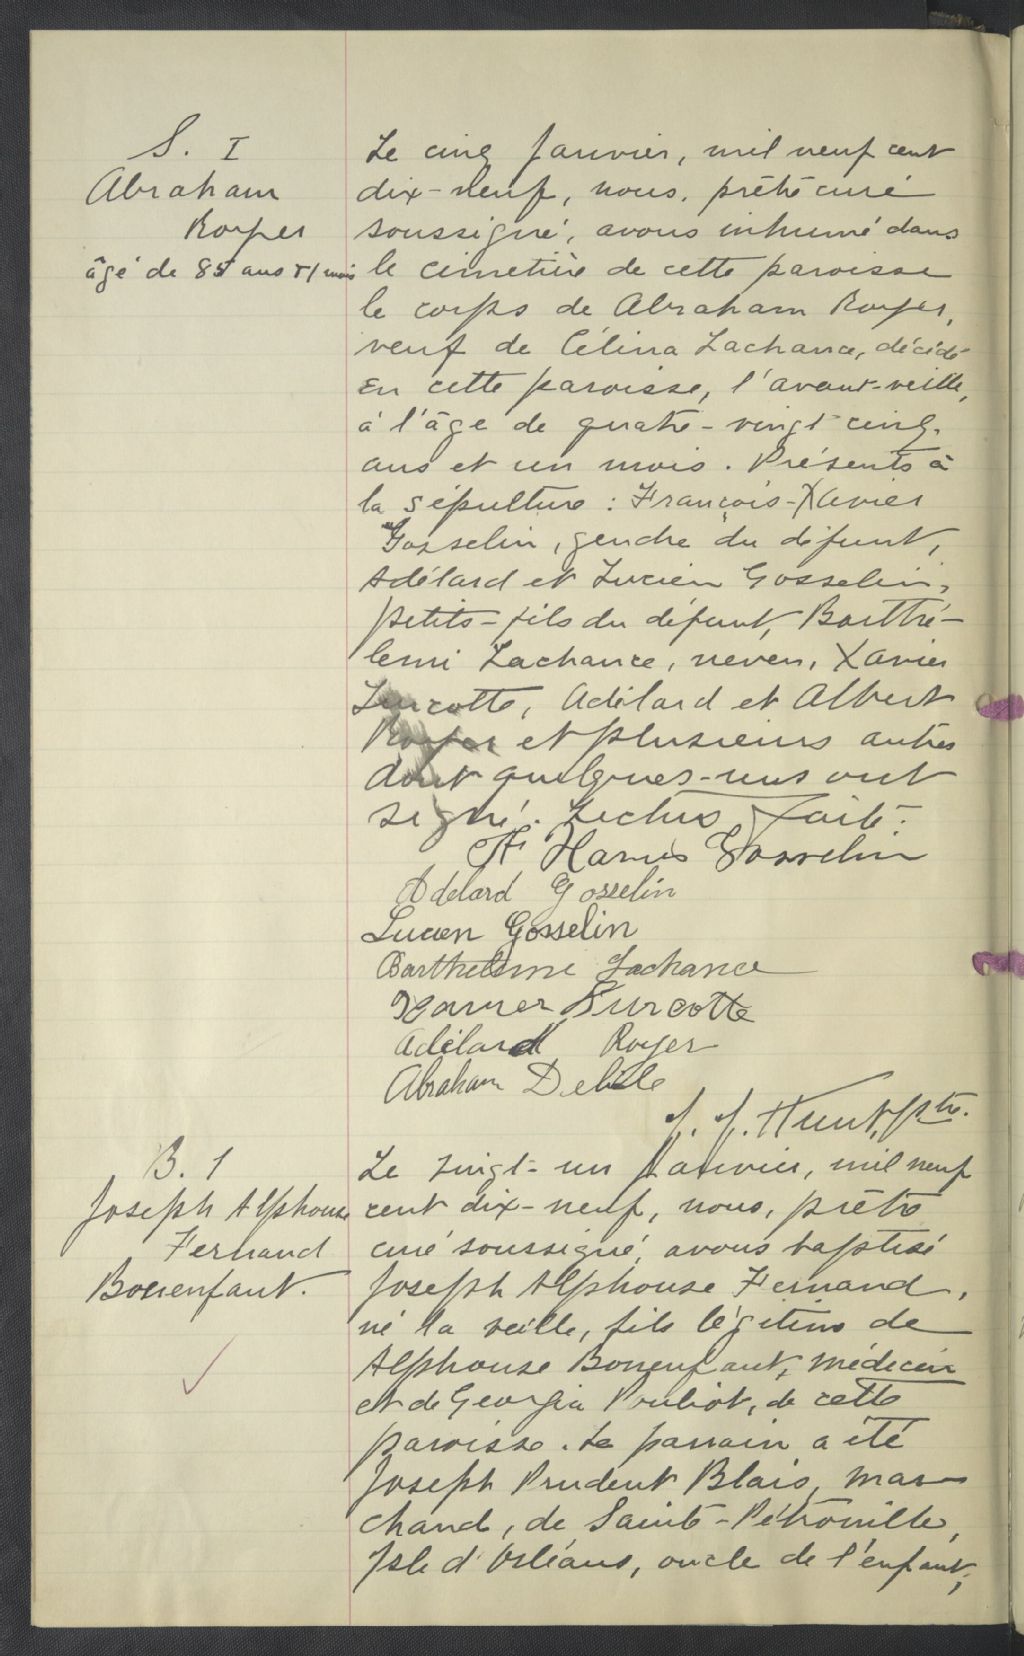 S. I
Abraham
Royer
âgé de 85 ans et 1 mois
Le cinq Janvier, mil neuf cent
dix-neuf, nous, prêtre curé
soussigné, avons inhumé dans
le cimetière de cette paroisse
le corps de Abraham Royer,
veuf de Célina Lachance, décédé
en cette paroisse, l'avant-veille,
à l'âge de quatre-vingt cinq
ans et un mois. Présents à
la sépulture : François-Xavier
Gosselin, gendre du défunt,
Adélard et Lucien Gosselin,
petits-fils du défunt, Barthé-
lemi Lachance, neveu, Xavier
Turcotte, Adélard et Albert
Royer et plusieurs autres
dont quelques-uns ont
signé. Lecture faite.
Gosselin
Adelard Gosselin
Lucien Gosselin
Barthelemie Lachance
Xavier Turcotte
Adélard Royer
Abraham Delisle
J. J. Hunt, ptre.
B. 1
Joseph Alphonse
Fernand
Bonenfant.
Le vingt-un Janvier, mil neuf
cent dix-neuf, nous, prêtre
curé soussigné, avons baptisé
Joseph Alphonse Fernand,
né la veille, fils légitime de
Alphonse Bonenfant, médecin
et de Georgia Pouliot, de cette
paroisse. Le parrain a été
Joseph Prudent Blais, mar-
chand, de Sainte-Pétronille,
Isle d'Orléans, oncle de l'enfant;